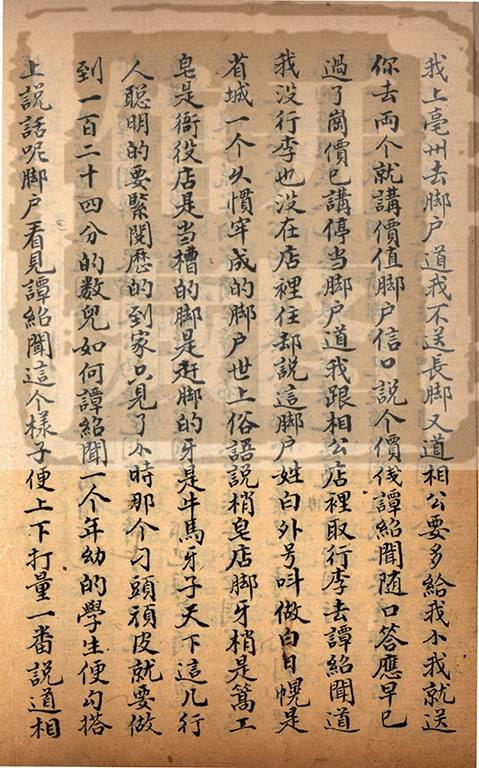 我上亳州去脚户道我不送長脚又道相公要多給我小我就送
你去两个就講價值脚户信口說个價伐譚紹聞随口答應早已
過了崗價已講停当脚户道我跟相公店裡取行李去譚紹聞道
我没行李也没在店裡住却説這脚户姓白外号叫做白日幌是
省城一个久慣牢成的脚户世上俗語説梢皂店脚牙梢是篙工
皂是衙役店是当槽的脚是赶脚的牙是牛馬牙子天下這几行
人聪明的要緊閱歷的到家只見了不時那个刁頭頑皮就要做
到一百二十四分的数兒如何譚紹聞一个年幼的學生便勾搭
上説話呢脚户看見譚紹聞這个樣子便上下打量一番説道相